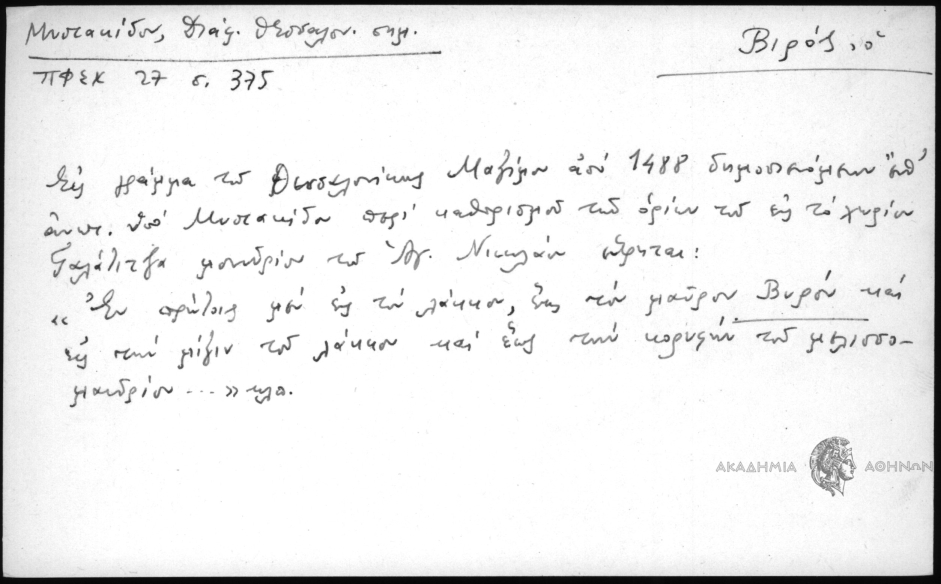 Μυστακίδου, Διάφ. Θεσσαλον. σημ.
ΠΦΣΚ 27 σ. 375
Βιρός, ὁ
Εἰς γράμμα τοῦ Θεσσαλονίκης Μαξίμου ἀπό 1488 δημοσιευόμενον
ἀνωτ. ὑπό Μυστακίδου περί καθορισμοῦ τῶν ὁρίων τοῦ εἰς τό χωρίον
Γαλάτιτζα μονυδρίου τοῦ Ἁγ. Νικολάου εὕρηται:
« Ἐν πρώτοις μέν εἰς τόν λάκκον, ἕως τόν μαῦρον Βυρόν καί
εἰς τήν μίξιν τοῦ λάκκου καί ἕως τήν κορυφήν τοῦ μελισσο-
μανδρίου ...» κλπ.
ΑΚΑΔΗΜΙΑ ΑΘΗΝΩΝ